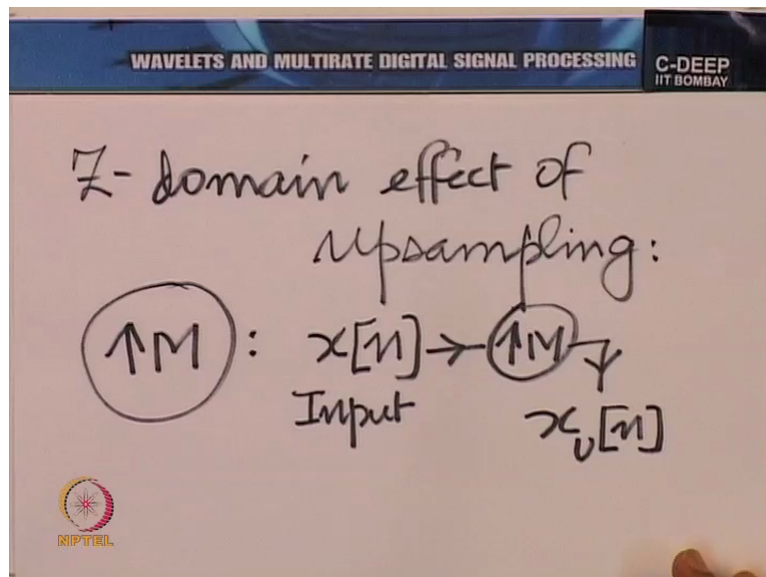 WAVELETS AND MULTIRATE DIGITAL SIGNAL PROCESSING
C-DEEP
IIT BOMBAY
Z-domain effect of
Upsampling:
↑M : x[n] → ↑M
Input
x_U[n]
NPTEL